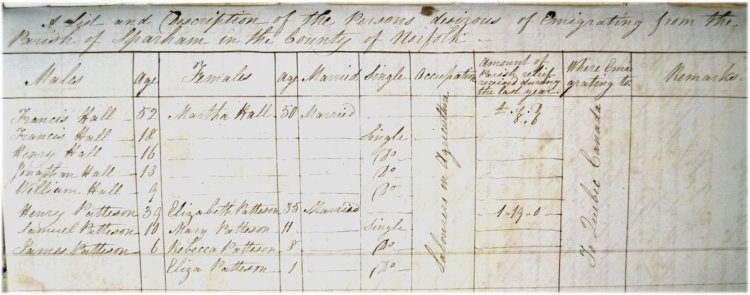 A list and Description of the Persons desirous of Emigrating from the
Parish of Sparham in the County of Norfolk —
Males Age Females Age Married Single Occupation Amount of Parish relief received during the last year Where Emigrating to Remarks
Francis Hall 52 Martha Hall 50 Married
Francis Hall 18 Single
Henry Hall 16 Do
Jonathan Hall 13 Do
William Hall 9 Do
Henry Patteson 39 Elizabeth Patteson 35 Married 1 . 19 . 0
Samuel Patteson 10 Mary Patteson 11 Single
James Patteson 6 Rebecca Patteson 8 Do
Eliza Patteson 1 Do
Labourers in Agriculture
To Quebec Canada